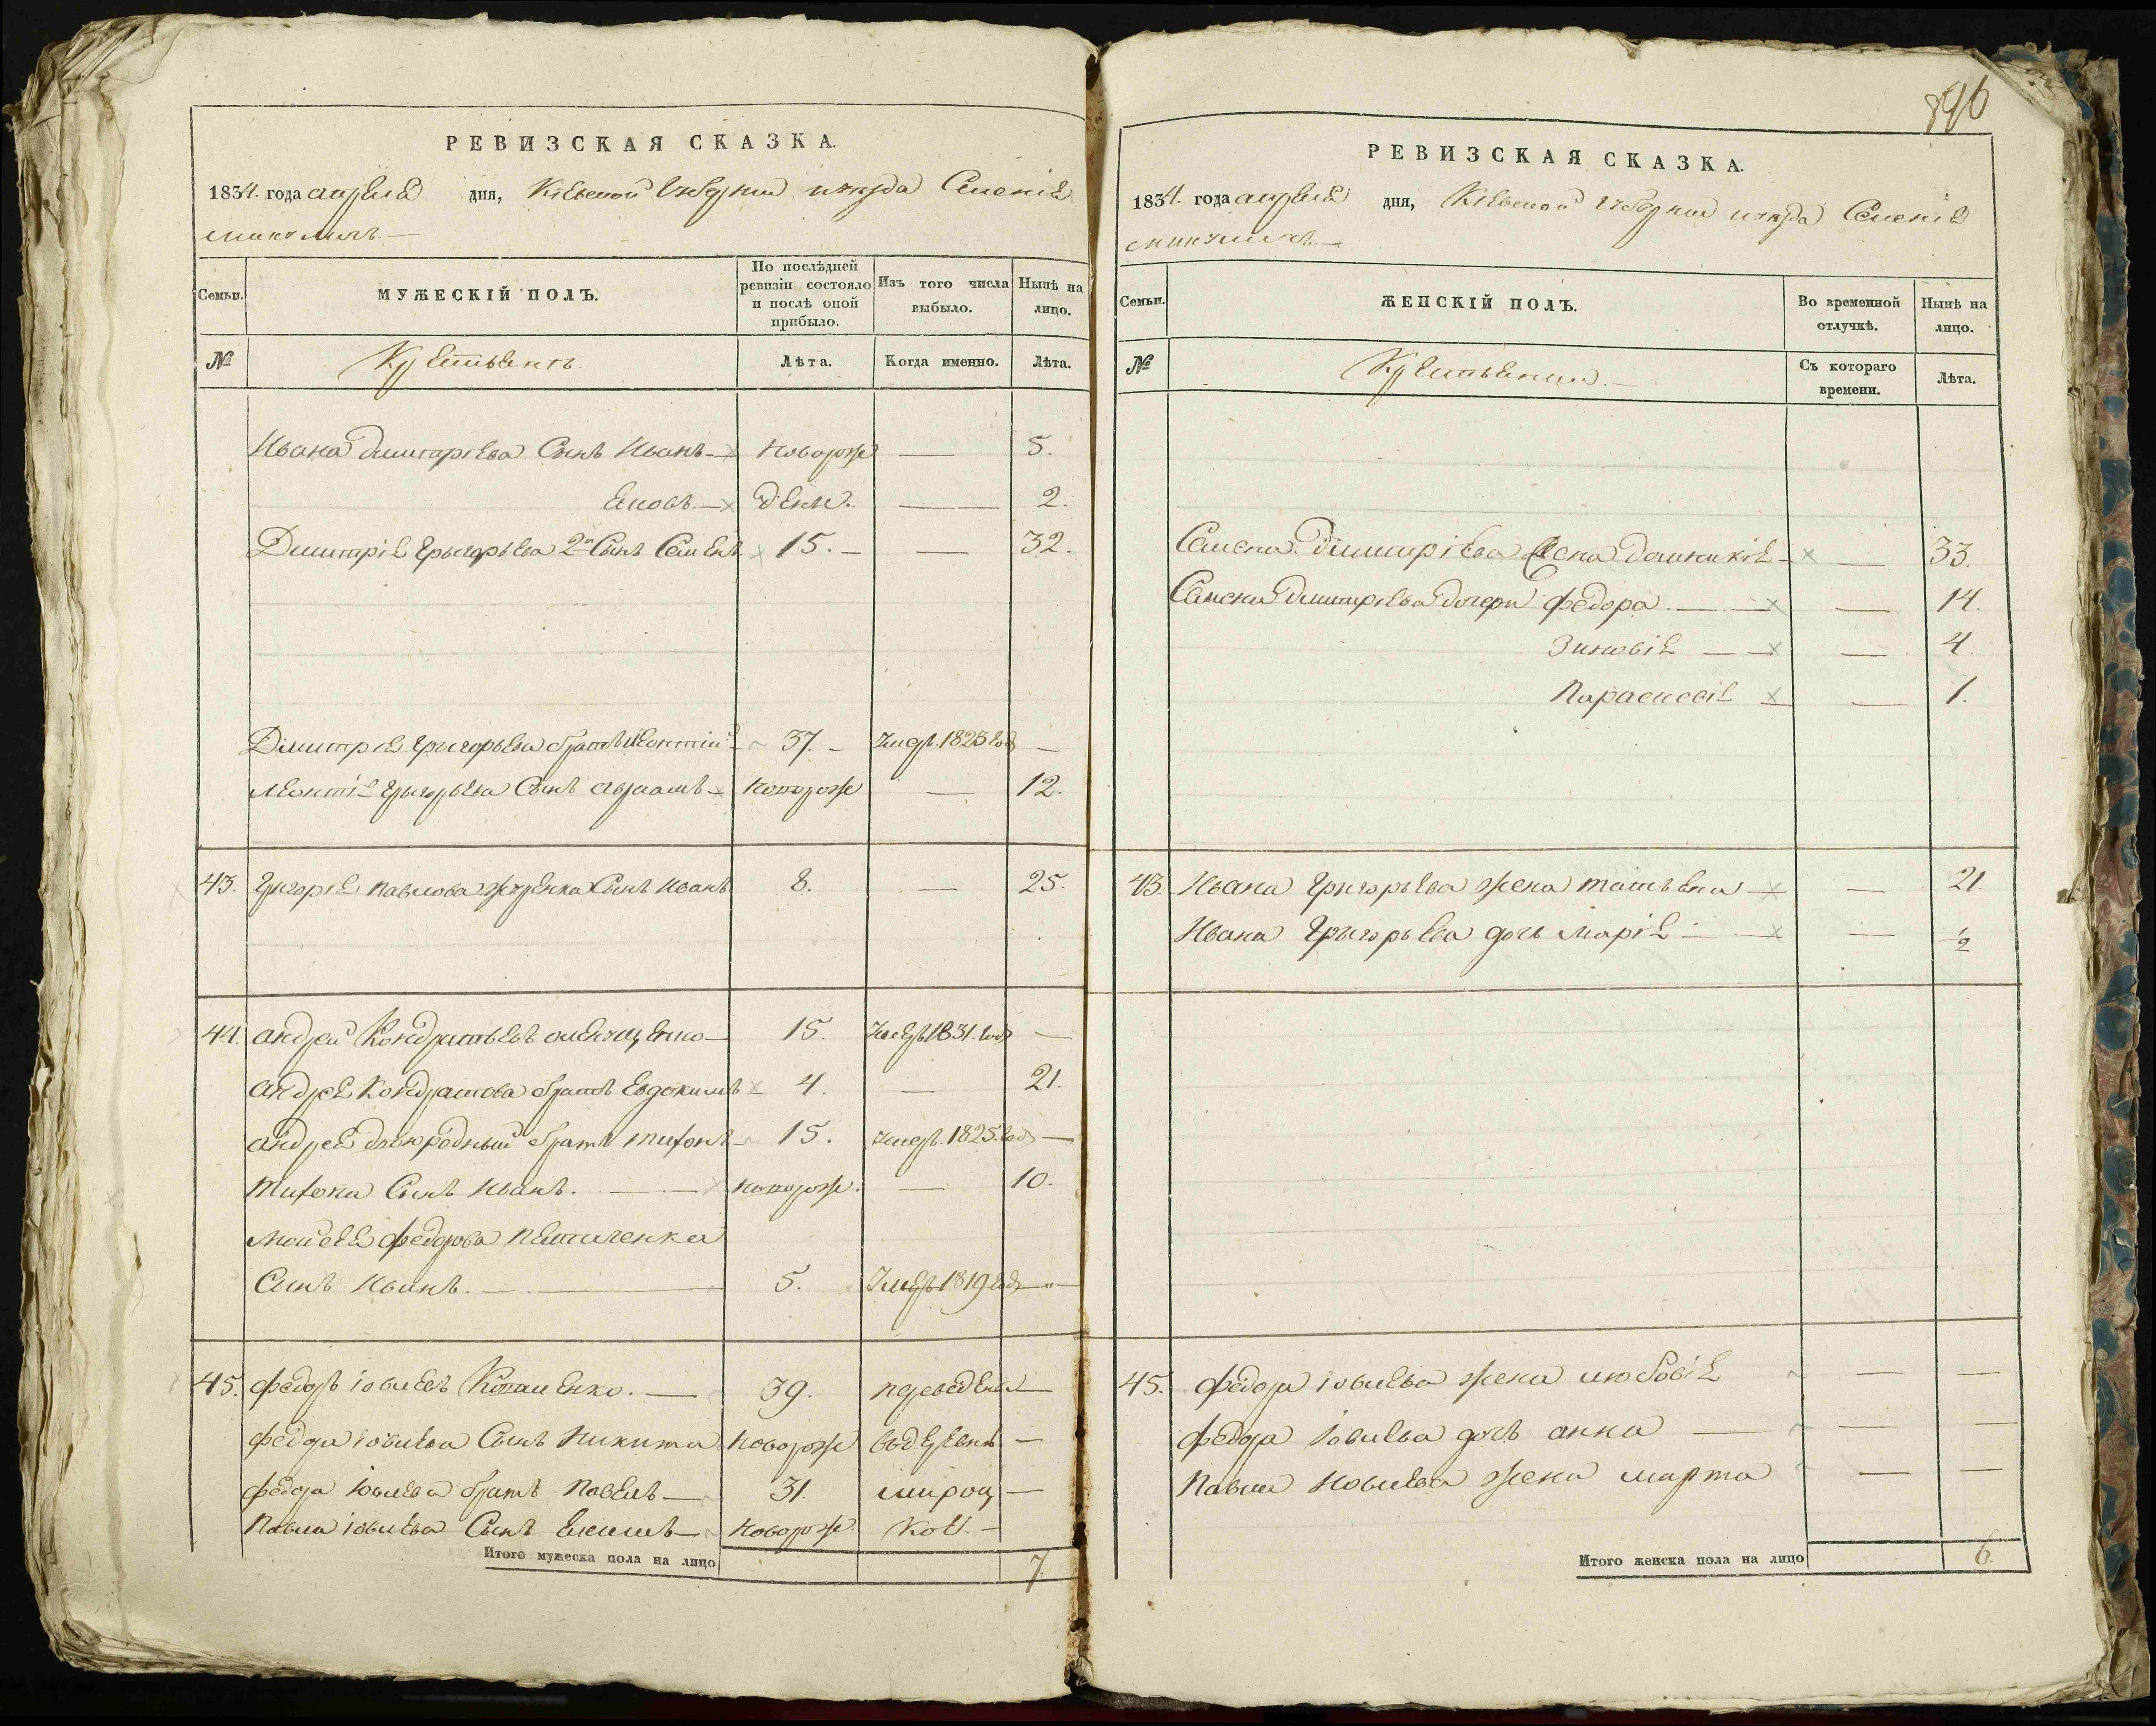 РЕВИЗСКАЯ СКАЗКА.
1834. года апреля дня, Кіевской Губерніи уезда
Семьи. МУЖЕСКІЙ ПОЛЪ. По послѣдней ревизіи состояло и послѣ оной прибыло. Изъ того числа выбыло. Нынѣ на лицо.
№ Лѣта. Когда именно. Лѣта.
Ивана Дмитріева Сынъ Иванъ — Новорож — 5.
— денн. — 2.
Дмитріе Григорьева 2й Сынъ Семенъ 15. — — 32.
Димитріе Григорьева братъ Леонтій — 37. — Умеръ. 1823 год —
Леонтіе Григорьева Сынъ Авраамъ — Новорож — 12.
43. Григоріе Павлова Сынъ Иванъ 8. — 25.
44. Андрей Кондратьевъ — 15. Умеръ 1831. год —
Андрее Кондратова братъ Евдокимъ 4. — 21.
Андрее двоюродный братъ Тифонъ — 15. Умеръ. 1825. год —
Тифона Сынъ Иванъ. — Новорож. — 10.
Мойсее Федорова
Сынъ Иванъ. — 5. Умеръ 1819 год —
45. Федоръ Іовлевъ — 39. переведены —
Федора Іовлева Сынъ Никита Новорож въ деревнѣ —
Федора Іовлева братъ Павелъ — 31. —
Павла Іовлева Сынъ — Новорож. —
Итого мужеска пола на лицо 7.
896
РЕВИЗСКАЯ СКАЗКА.
1834. года апреля дня, Кіевской Губерніи уезда
Семьи. ЖЕНСКІЙ ПОЛЪ. Во временной отлучкѣ. Нынѣ на лицо.
№ Съ котораго времени. Лѣта.
Семена Димитріева Жена Домникіе — — 33.
Семена Димитріева дочери Федора — — 14.
Зиновіе — — 4.
Параскевіе — 1.
43. Ивана Григорьева жена Татьяна — — 21.
Ивана Григорьева дочь Маріе — — ½
45. Федора Іовлева жена Любовіе — —
Федора Іовлева дочь Анна — — —
Павла Іовлева жена Марта — —
Итого женска пола на лицо 6.